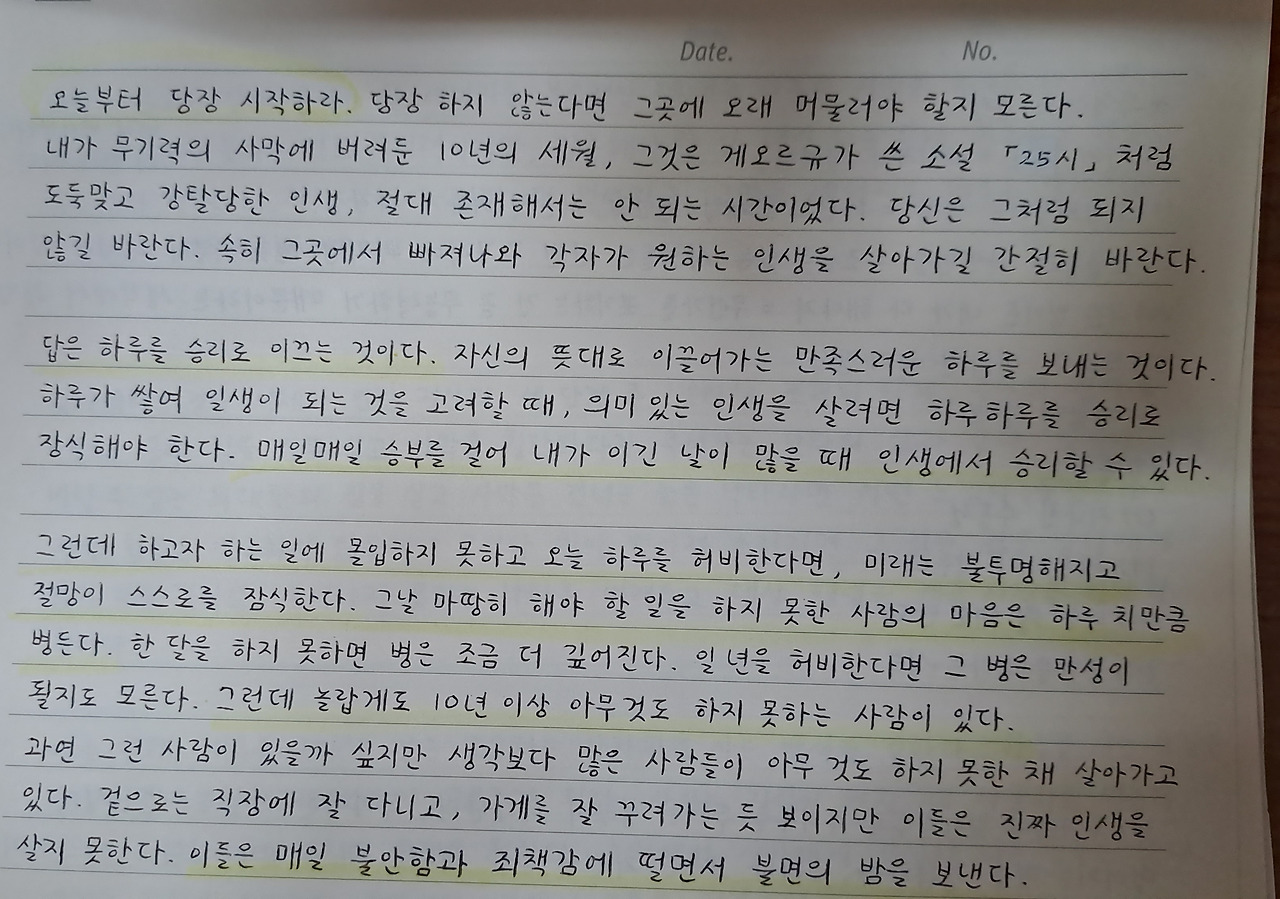 Date. No.
오늘부터 당장 시작하라. 당장 하지 않는다면 그곳에 오래 머물러야 할지 모른다.
내가 무기력의 사막에 버려둔 10년의 세월, 그것은 게오르규가 쓴 소설 「25시」처럼
도둑맞고 강탈당한 인생, 절대 존재해서는 안 되는 시간이었다. 당신은 그처럼 되지
않길 바란다. 속히 그곳에서 빠져나와 각자가 원하는 인생을 살아가길 간절히 바란다.
답은 하루를 승리로 이끄는 것이다. 자신의 뜻대로 이끌어가는 만족스러운 하루를 보내는 것이다.
하루가 쌓여 일생이 되는 것을 고려할 때, 의미 있는 인생을 살려면 하루하루를 승리로
장식해야 한다. 매일매일 승부를 걸어 내가 이긴 날이 많을 때 인생에서 승리할 수 있다.
그런데 하고자 하는 일에 몰입하지 못하고 오늘 하루를 허비한다면, 미래는 불투명해지고
절망이 스스로를 잠식한다. 그날 마땅히 해야 할 일을 하지 못한 사람의 마음은 하루 치만큼
병든다. 한 달을 하지 못하면 병은 조금 더 깊어진다. 일 년을 허비한다면 그 병은 만성이
될지도 모른다. 그런데 놀랍게도 10년 이상 아무것도 하지 못하는 사람이 있다.
과연 그런 사람이 있을까 싶지만 생각보다 많은 사람들이 아무 것도 하지 못한 채 살아가고
있다. 겉으로는 직장에 잘 다니고, 가게를 잘 꾸려가는 듯 보이지만 이들은 진짜 인생을
살지 못한다. 이들은 매일 불안함과 죄책감에 떨면서 불면의 밤을 보낸다.